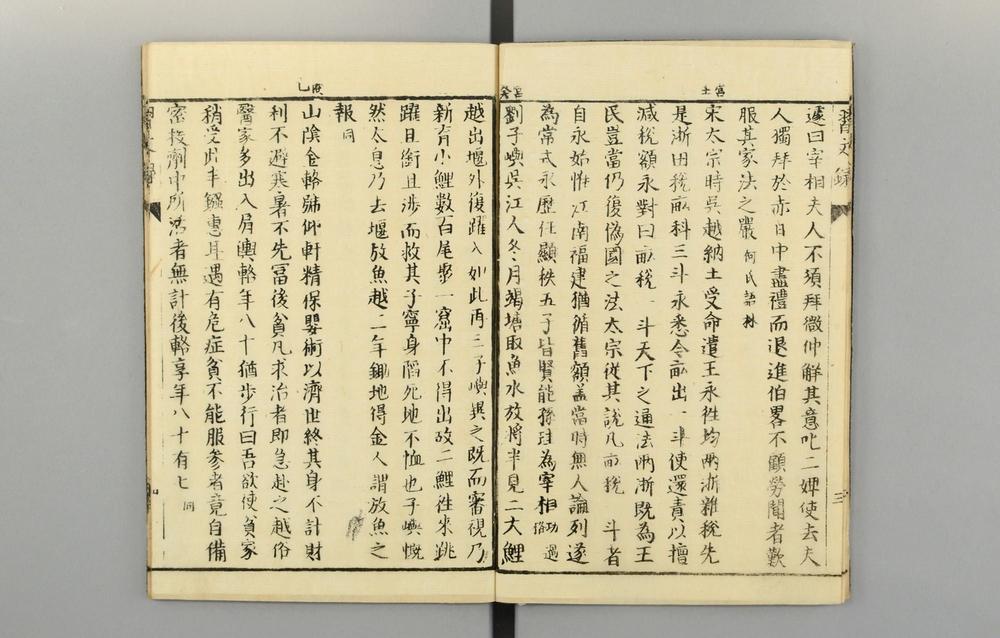 宮士
遽曰宰相夫人不須拜微仲解其意叱二婢使去夫
人獨拜於赤日中盡禮而退進伯畧不顧勞聞者歎
服其家法之嚴 何氏語林
宋太宗時吳越納土受命遣王永徃均兩浙雜稅先
是浙田稅畝科三斗永悉令畝出一斗使還責以擅
減稅額永對曰畝稅一斗天下之通法兩浙既為王
民豈當仍復偽國之法太宗從其說凡畝稅 斗者
自永始惟江南福建猶循舊額盖當時無人論列遂
為常式永歷任顯秩五子皆賢能孫珪為宰相 功過格
宮癸
劉子嶼吳江人冬月竭塘取魚水放將半見二大鯉
越出堰外復躍入如此再三子嶼異之既而審視乃
新育小鯉數百尾聚一窟中不得出故二鯉徃來跳
躍且銜且涉而救其子寧身陷死地不恤也子嶼慨
然太息乃去堰放魚越二年鋤地得金人謂放魚之
報 同
山陰金輅號仰軒精保嬰術以濟世終其身不計財
利不避寒暑不先冨後貧凡求治者即急赴之越俗
醫家多出入肩輿輅年八十猶步行曰吾欲使貧家
稍受此半鏹惠耳遇有危症貧不能服參者竟自備
密投劑中所活者無計後輅享年八十有七 同